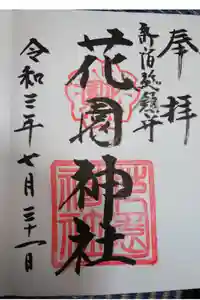 奉拝
新宿総鎮守
花園神社
令和三年七月三十一日